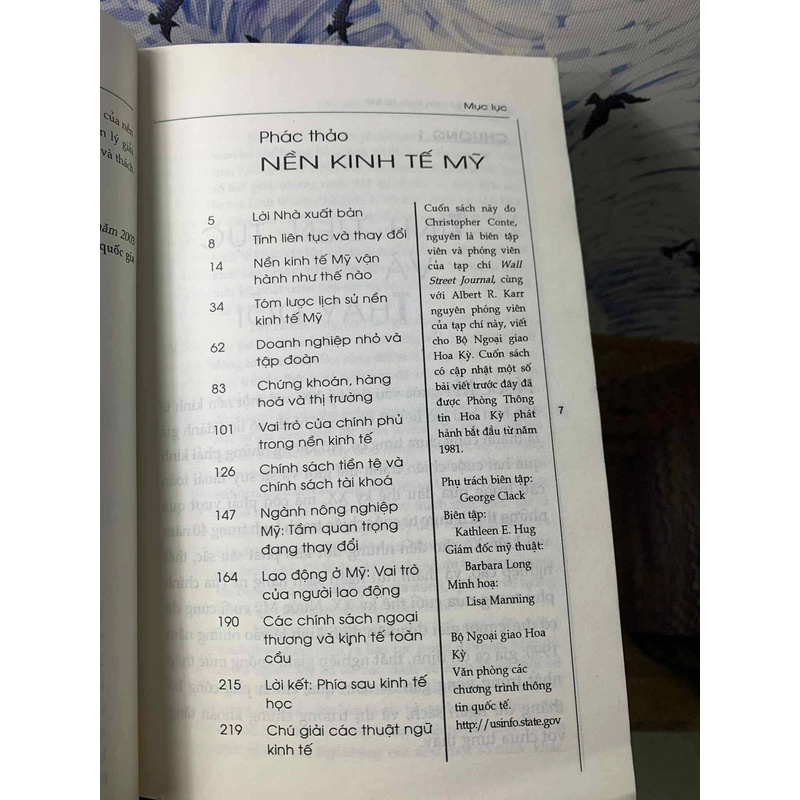 của nền
lý giải
và thách
năm 2003
quốc gia
Mục lục
Phác thảo
NỀN KINH TẾ MỸ
5 Lời Nhà xuất bản
8 Tính liên tục và thay đổi
14 Nền kinh tế Mỹ vận
hành như thế nào
34 Tóm lược lịch sử nền
kinh tế Mỹ
62 Doanh nghiệp nhỏ và
tập đoàn
83 Chứng khoán, hàng
hoá và thị trường
101 Vai trò của chính phủ
trong nền kinh tế
126 Chính sách tiền tệ và
chính sách tài khoá
147 Ngành nông nghiệp
Mỹ: Tầm quan trọng
đang thay đổi
164 Lao động ở Mỹ: Vai trò
của người lao động
190 Các chính sách ngoại
thương và kinh tế toàn
cầu
215 Lời kết: Phía sau kinh tế
học
219 Chú giải các thuật ngữ
kinh tế
Cuốn sách này do
Christopher Conte,
nguyên là biên tập
viên và phóng viên
của tạp chí Wall
Street Journal, cùng
với Albert R. Karr
nguyên phóng viên
của tạp chí này, viết
cho Bộ Ngoại giao
Hoa Kỳ. Cuốn sách
có cập nhật một số
bài viết trước đây đã
được Phòng Thông
tin Hoa Kỳ phát
hành bắt đầu từ năm
1981.
Phụ trách biên tập:
George Clack
Biên tập:
Kathleen E. Hug
Giám đốc mỹ thuật:
Barbara Long
Minh hoạ:
Lisa Manning
Bộ Ngoại giao Hoa
Kỳ
Văn phòng các
chương trình thông
tin quốc tế.
http://usinfo.state.gov
7